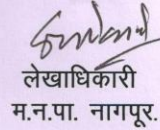 लेखाधिकारी
म.न.पा. नागपूर.